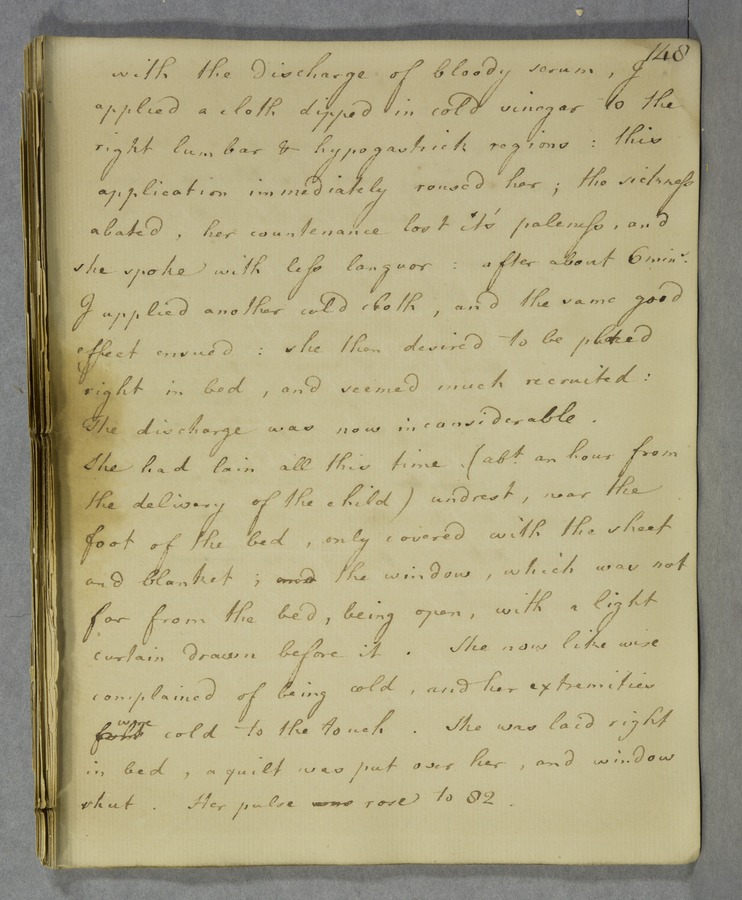 148
with the Discharge of bloody serum, I
applied a cloth dipped in cold vinegar to the
right lumbar & hypogastrick regions : this
application immediately roused her ; the sickness
abated, her countenance lost it's paleness, and
she spoke with less languor : after about 6 min.s
I applied another cold cloth, and the same good
effect ensued : she then desired to be placed
right in bed, and seemed much recruited :
The discharge was now inconsiderable.
She had lain all this time (abt. an hour from
the delivery of the child) undrest, near the
foot of the bed, only covered with the sheet
and blanket ; and the window, which was not
far from the bed, being open, with a light
curtain drawn before it. She now likewise
complained of being cold, and her extremities
were cold to the touch. She was laid right
in bed, a quilt was put over her, and window
shut. Her pulse was rose to 82.